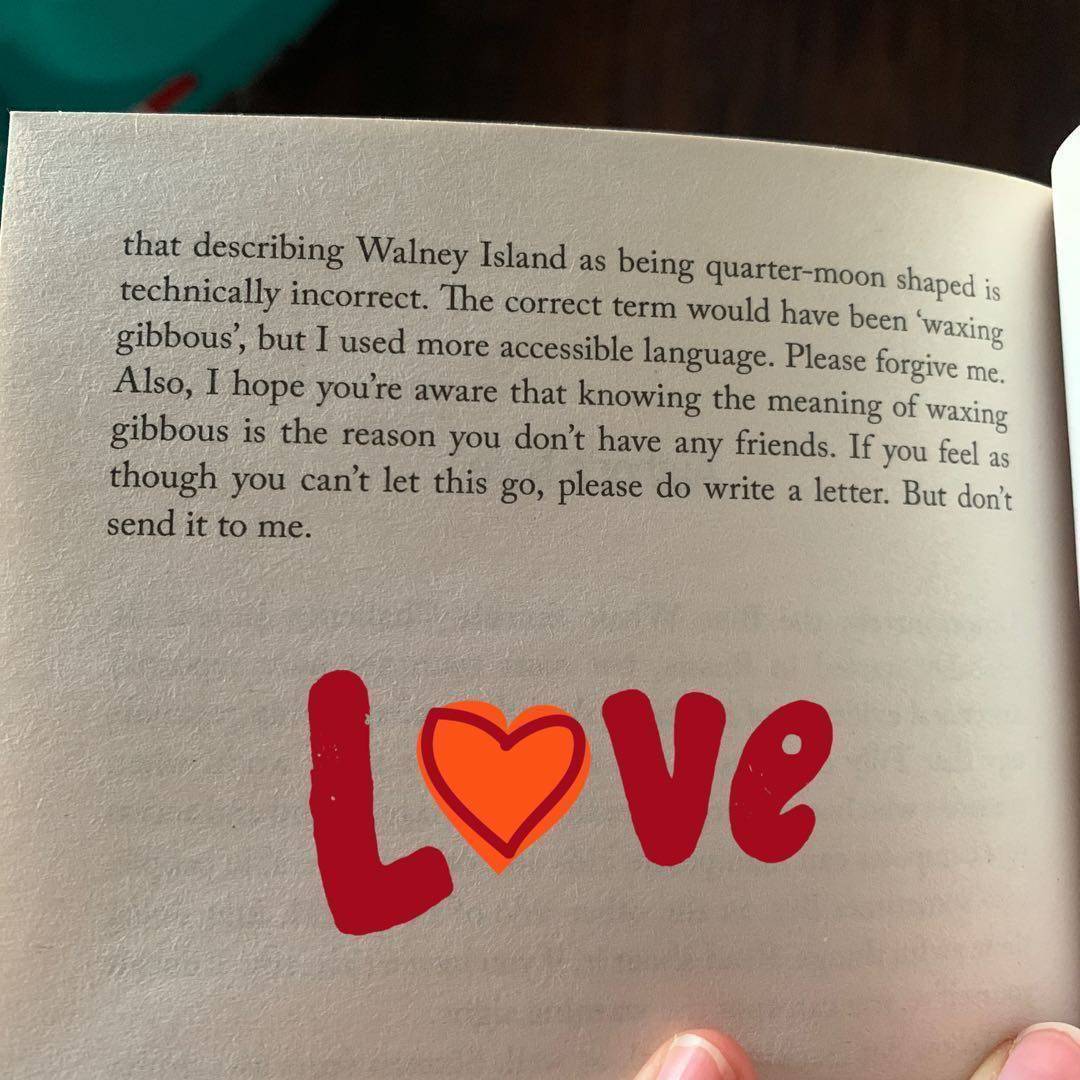 that describing Walney Island as being quarter-moon shaped is
technically incorrect. The correct term would have been ‘waxing
gibbous’, but I used more accessible language. Please forgive me.
Also, I hope you’re aware that knowing the meaning of waxing
gibbous is the reason you don’t have any friends. If you feel as
though you can’t let this go, please do write a letter. But don’t
send it to me.
Love